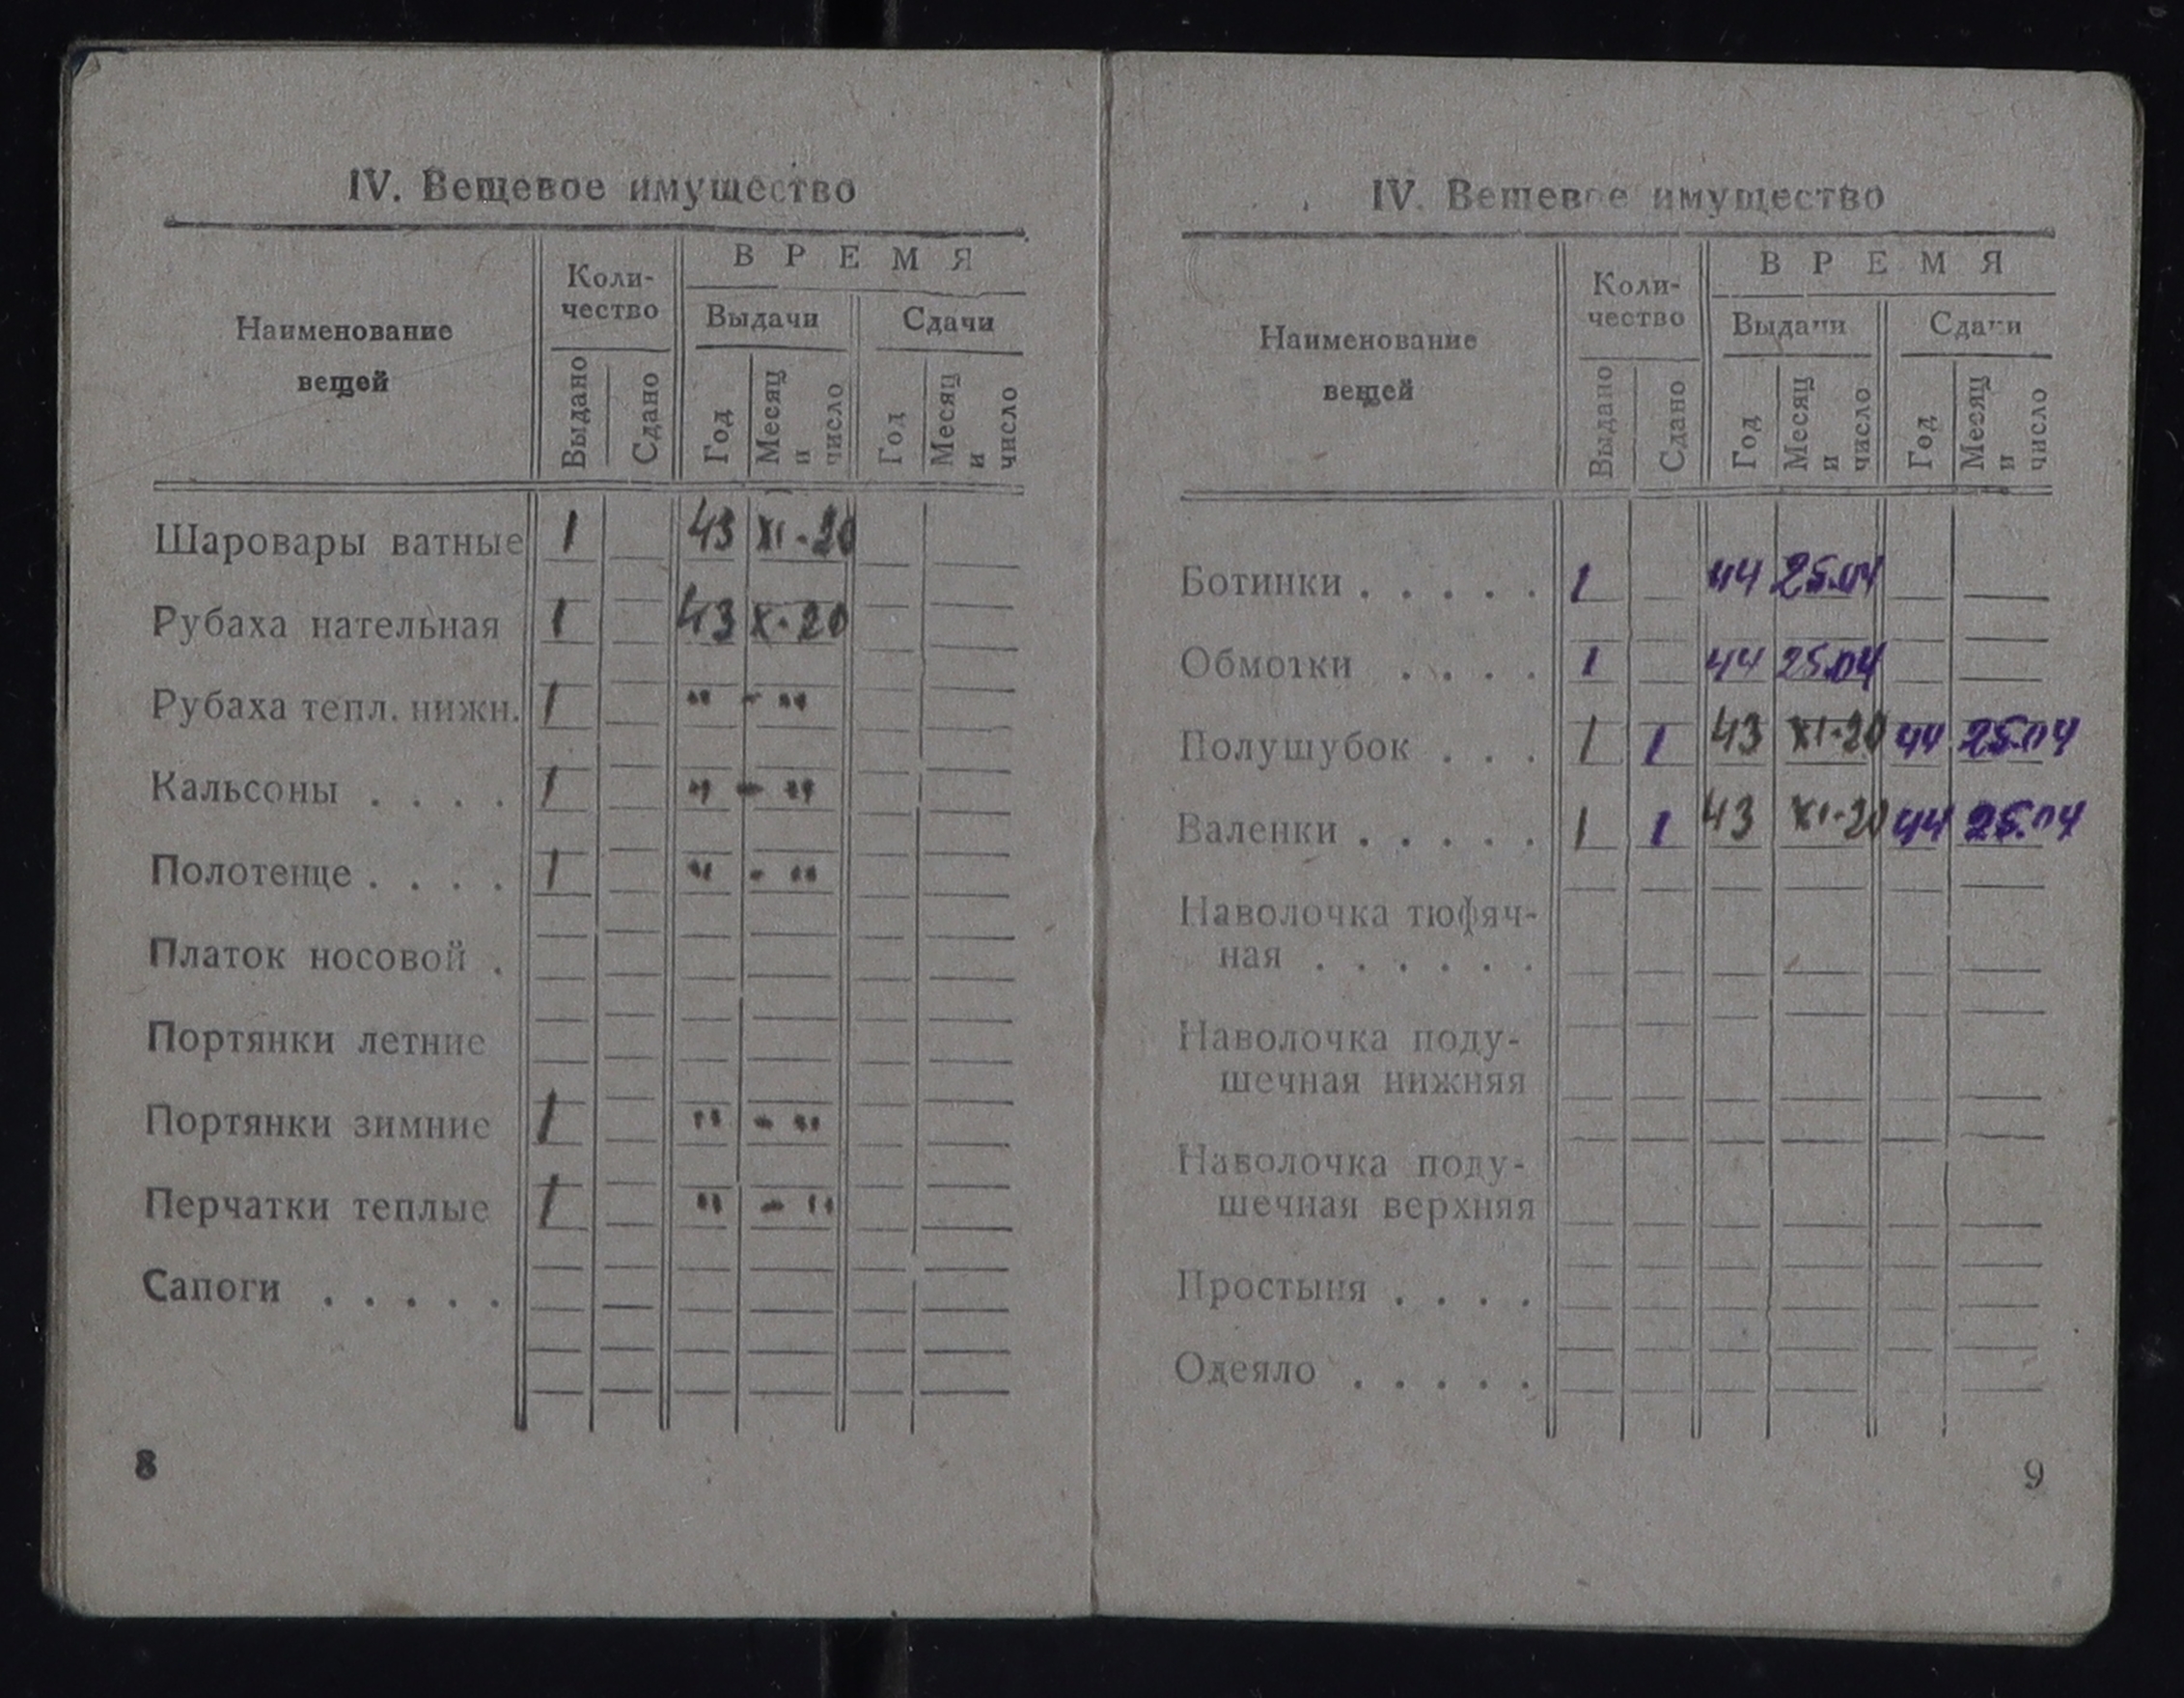 IV. Вещевое имущество
Наименование вещей
Коли-
чество
ВРЕМЯ
Выдачи
Сдачи
Выдано
Сдано
Год
Месяц и число
Год
Месяц и число
Шаровары ватные 1 43 XI-20
Рубаха нательная 1 43 X-20
Рубаха тепл. нижн. 1 " - "
Кальсоны . . . . 1 " - "
Полотенце . . . . 1 " - "
Платок носовой .
Портянки летние
Портянки зимние 1 " - "
Перчатки теплые 1 " - "
Сапоги . . . . .
8
IV. Вещевое имущество
Наименование вещей
Коли-
чество
ВРЕМЯ
Выдачи
Сдачи
Выдано
Сдано
Год
Месяц и число
Год
Месяц и число
Ботинки . . . . . 1 44 25.04
Обмотки . . . . 1 44 25.04
Полушубок . . . 1 1 43 XI-20 44 25.04
Валенки . . . . . 1 1 43 XI-20 44 25.04
Наволочка тюфяч-
ная . . . . . .
Наволочка поду-
шечная нижняя
Наволочка поду-
шечная верхняя
Простыня . . . .
Одеяло . . . . .
9